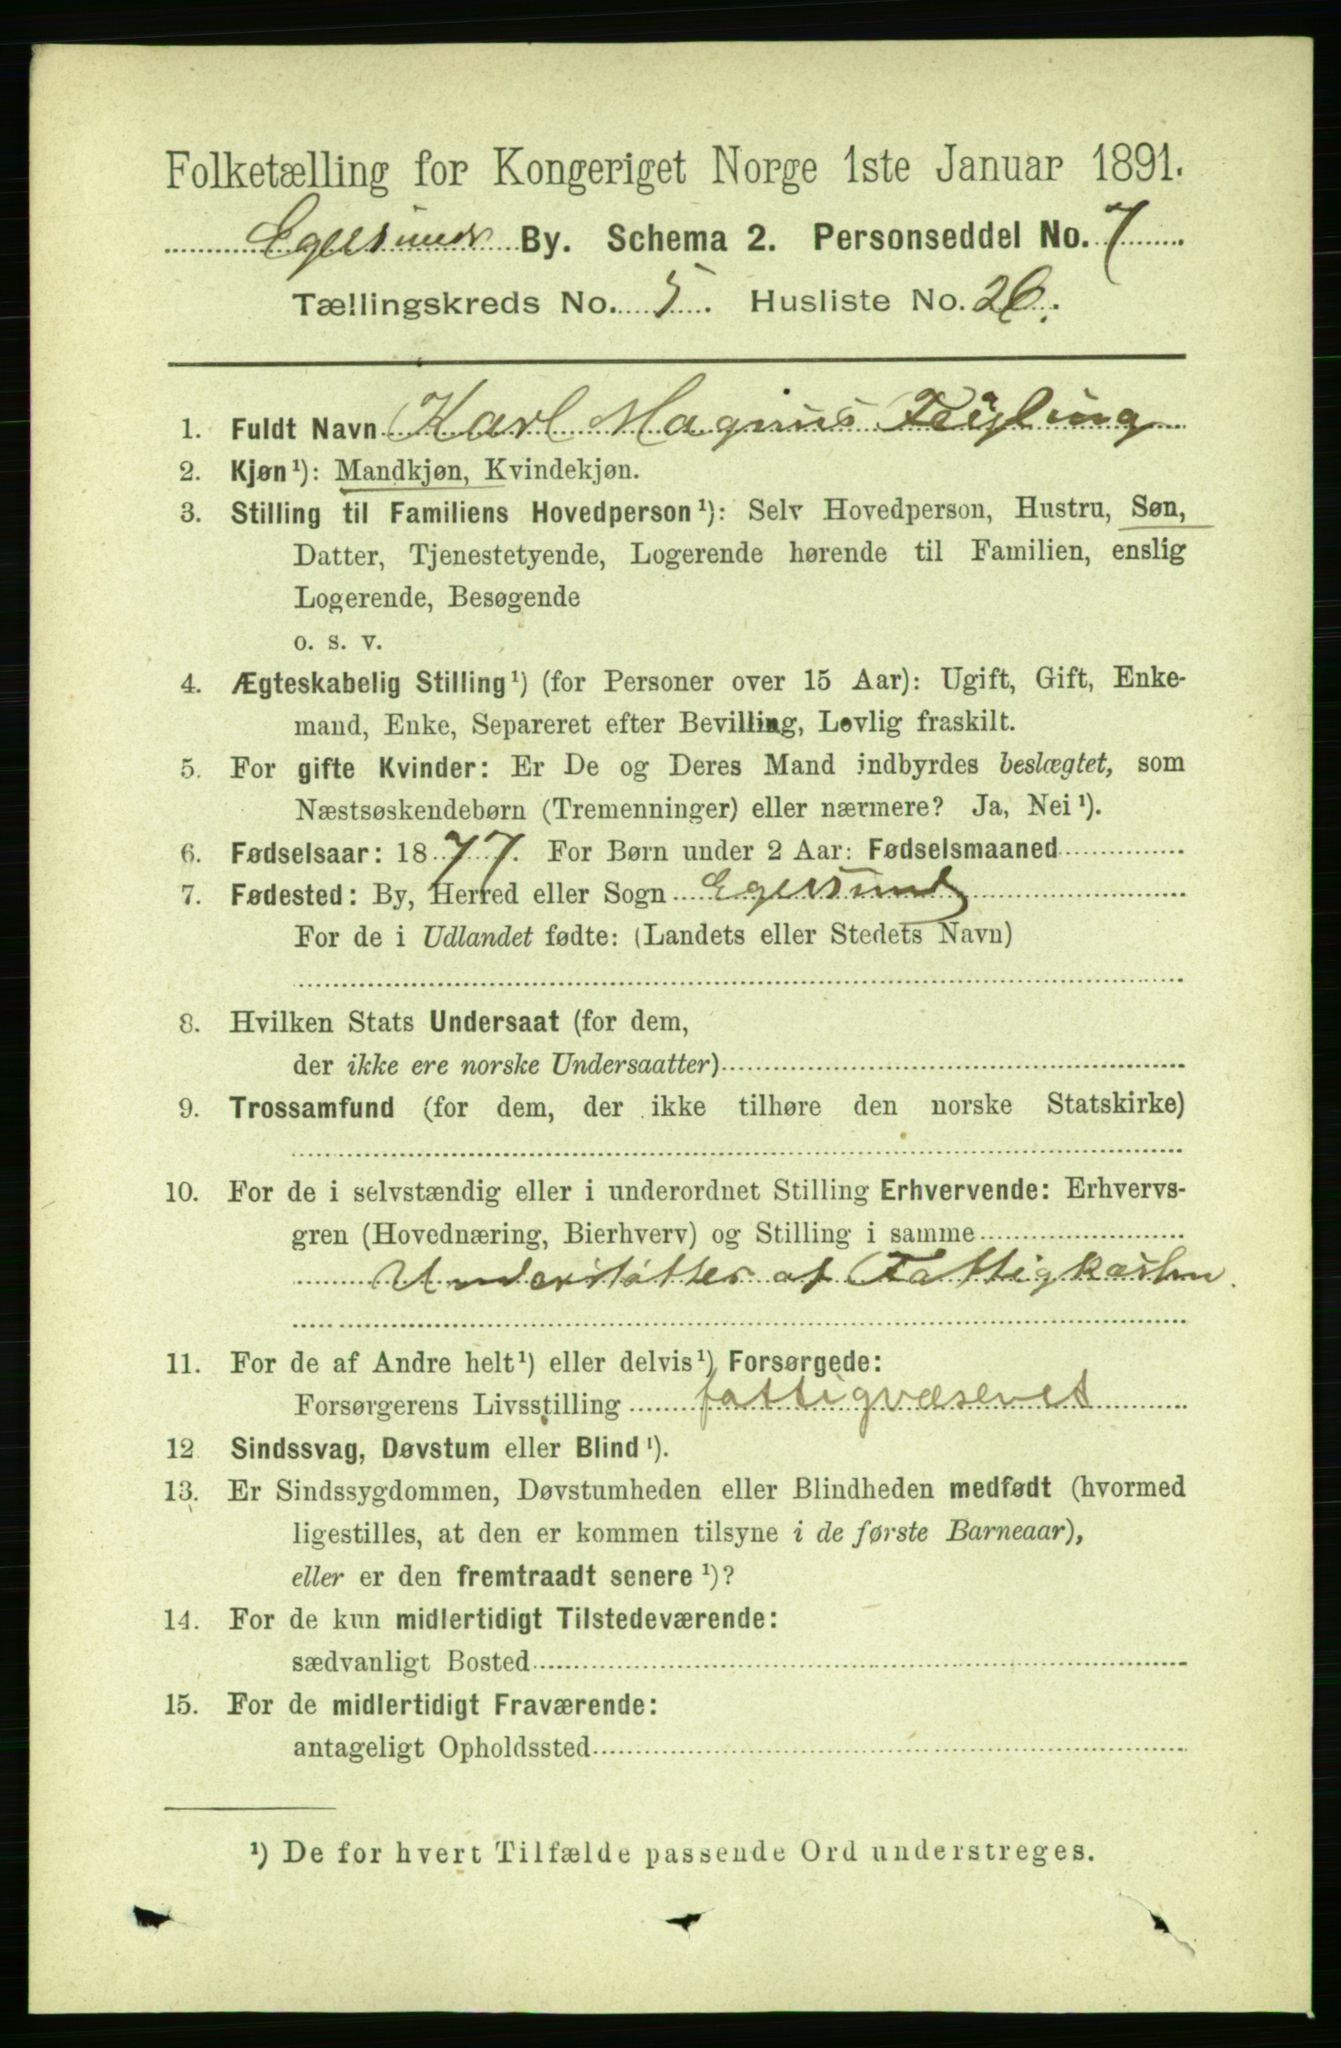 Folketælling for Kongeriget Norge 1ste Januar 1891.
Egersunds By. Schema 2. Personseddel No. 7
Tællingskreds No. 5. Husliste No. 26.
1. Fuldt Navn Karl Magnus
2. Kjøn¹): Mandkjøn, Kvindekjøn.
3. Stilling til Familiens Hovedperson¹): Selv Hovedperson, Hustru, Søn,
Datter, Tjenestetyende, Logerende hørende til Familien, enslig
Logerende, Besøgende
o. s. v.
4. Ægteskabelig Stilling¹) (for Personer over 15 Aar): Ugift, Gift, Enke-
mand, Enke, Separeret efter Bevilling, Lovlig fraskilt.
5. For gifte Kvinder: Er De og Deres Mand indbyrdes beslægtet, som
Næstsøskendebørn (Tremenninger) eller nærmere? Ja, Nei¹).
6. Fødselsaar: 1877. For Børn under 2 Aar: Fødselsmaaned
7. Fødested: By, Herred eller Sogn Egersund
For de i Udlandet fødte: (Landets eller Stedets Navn)
8. Hvilken Stats Undersaat (for dem,
der ikke ere norske Undersaatter)
9. Trossamfund (for dem, der ikke tilhøre den norske Statskirke)
10. For de i selvstændig eller i underordnet Stilling Erhvervende: Erhvervs-
gren (Hovednæring, Bierhverv) og Stilling i samme
Understøttes af Fattigkassen.
11. For de af Andre helt¹) eller delvis¹) Forsørgede:
Forsørgerens Livsstilling fattigvæsenet
12 Sindssvag, Døvstum eller Blind¹).
13. Er Sindssygdommen, Døvstumheden eller Blindheden medfødt (hvormed
ligestilles, at den er kommen tilsyne i de første Barneaar),
eller er den fremtraadt senere¹)?
14. For de kun midlertidigt Tilstedeværende:
sædvanligt Bosted
15. For de midlertidigt Fraværende:
antageligt Opholdssted
¹) De for hvert Tilfælde passende Ord understreges.